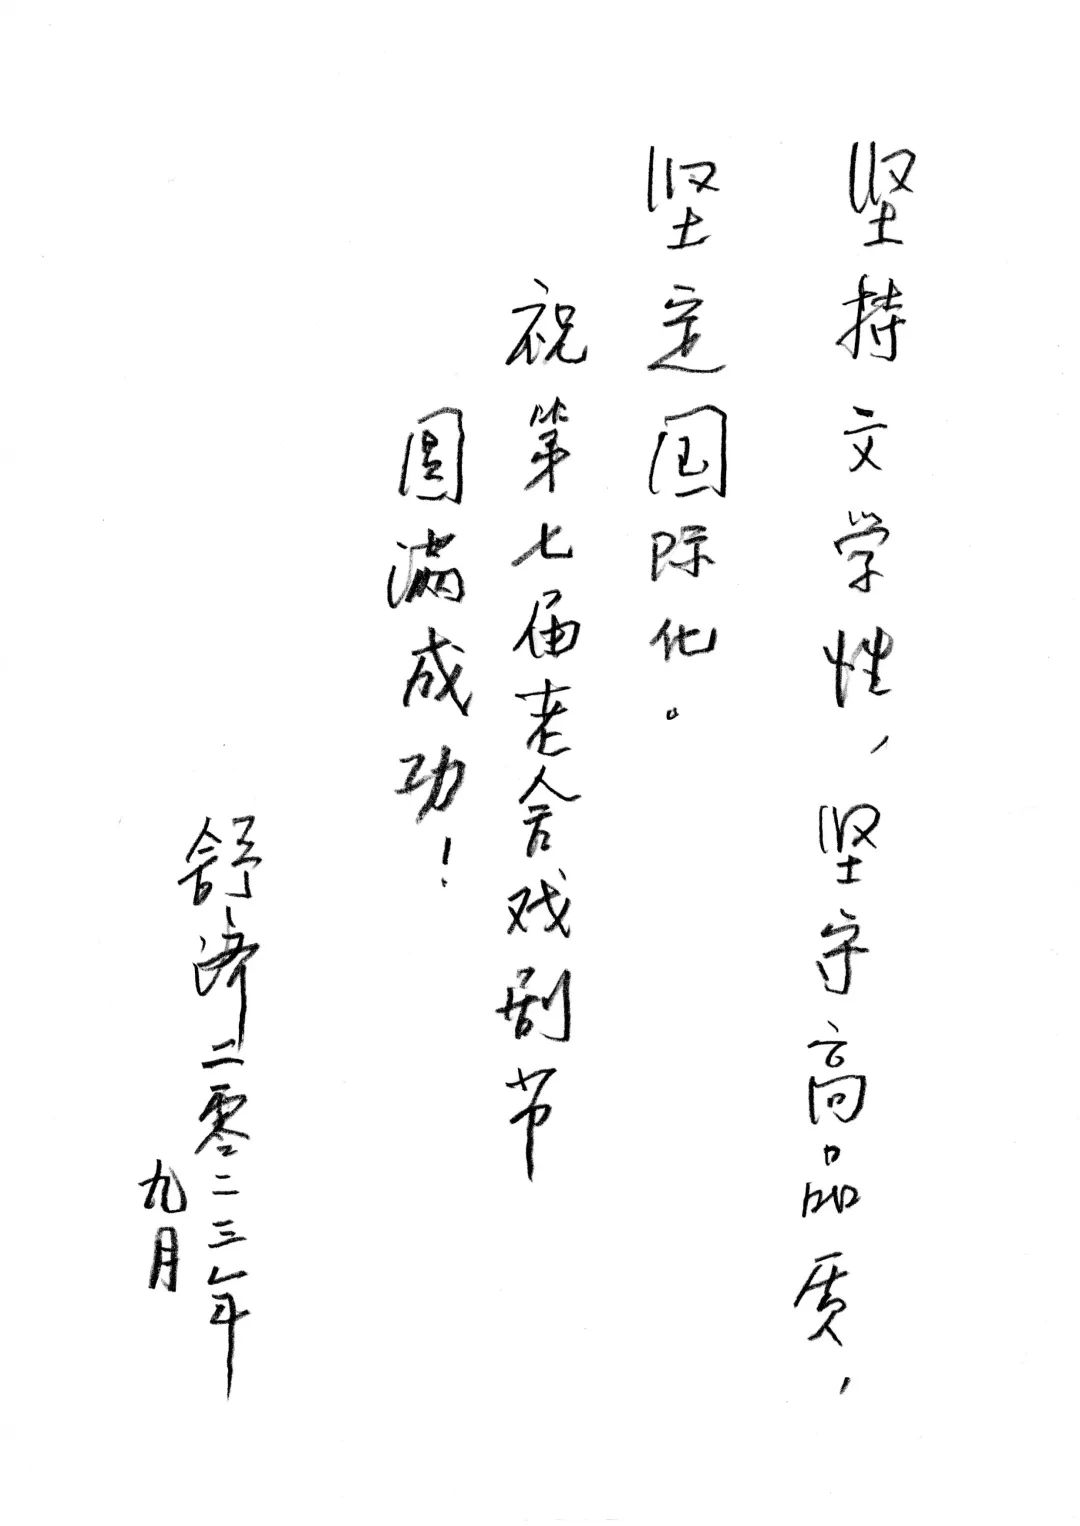 坚持文学性，坚守高品质，
坚定国际化。
祝第七届老舍戏剧节
圆满成功！
舒济二零二三年
九月